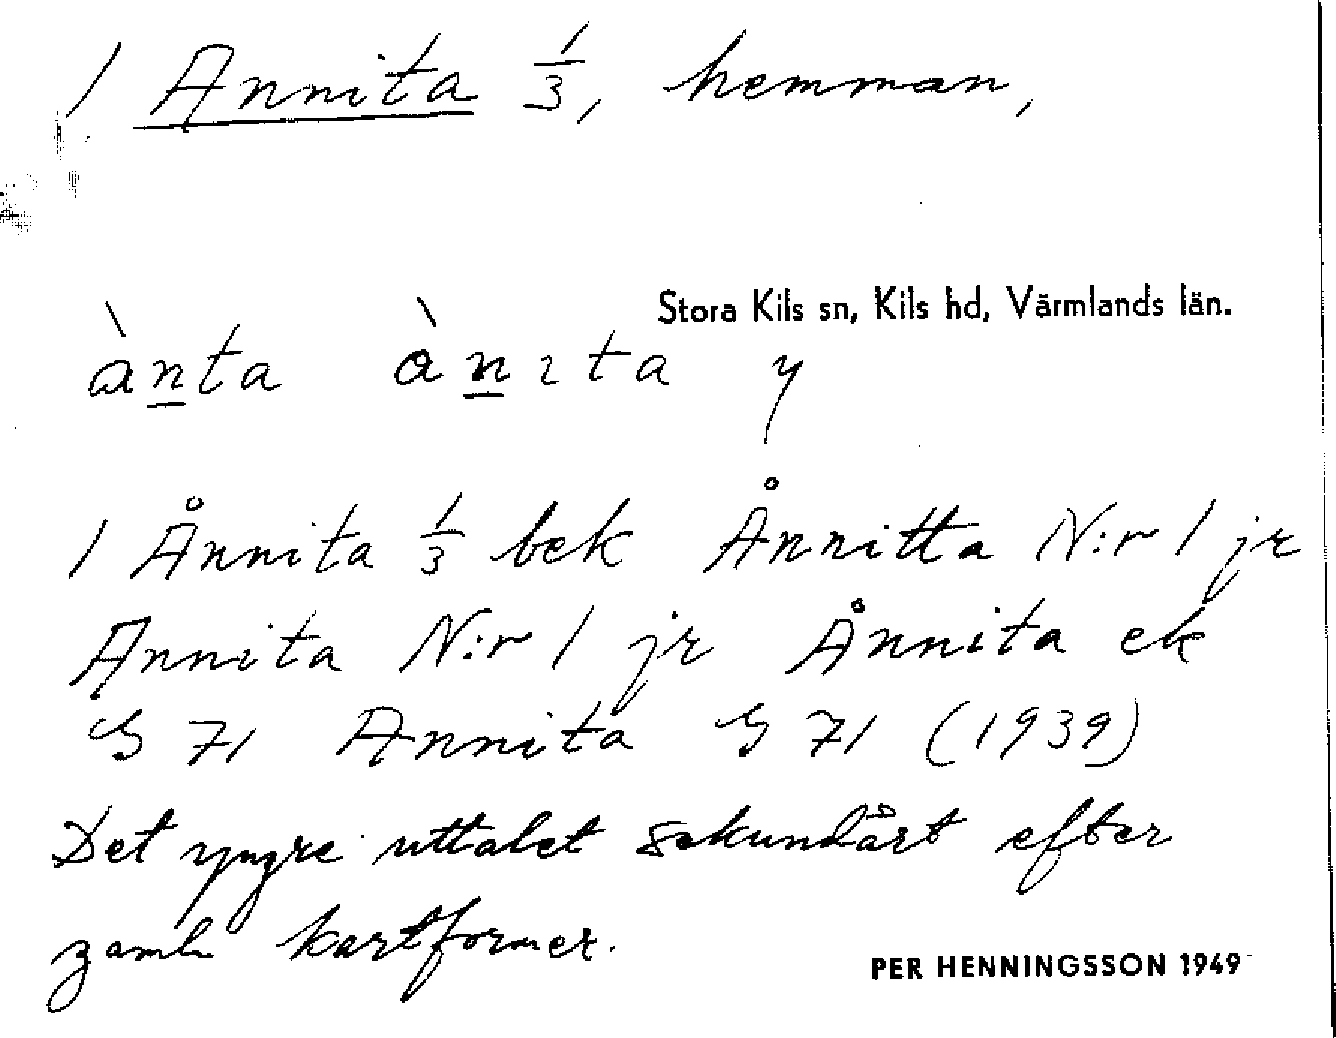 1 Annita 1/3, hemman,
Stora Kils sn, Kils hd, Värmlands län.
ànta ànıta y
1 Ånnita 1/3 bek Ånnitta N:r 1 jr
Annita N:r 1 jr Ånnita ek
G 71 Annita G 71 (1939)
Det yngre uttalet sekundärt efter
gamla kartformer.
PER HENNINGSSON 1949